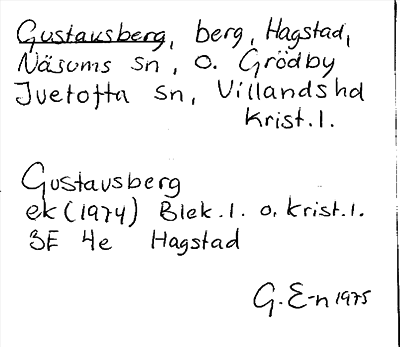 Gustavsberg, berg, Hagstad,
Näsums sn, o. Grödby
Ivetofta sn, Villands hd
Krist.l.
Gustavsberg
ek (1974) Blek.l. o. Krist.l.
3E 4e Hagstad
G. E-n 1975